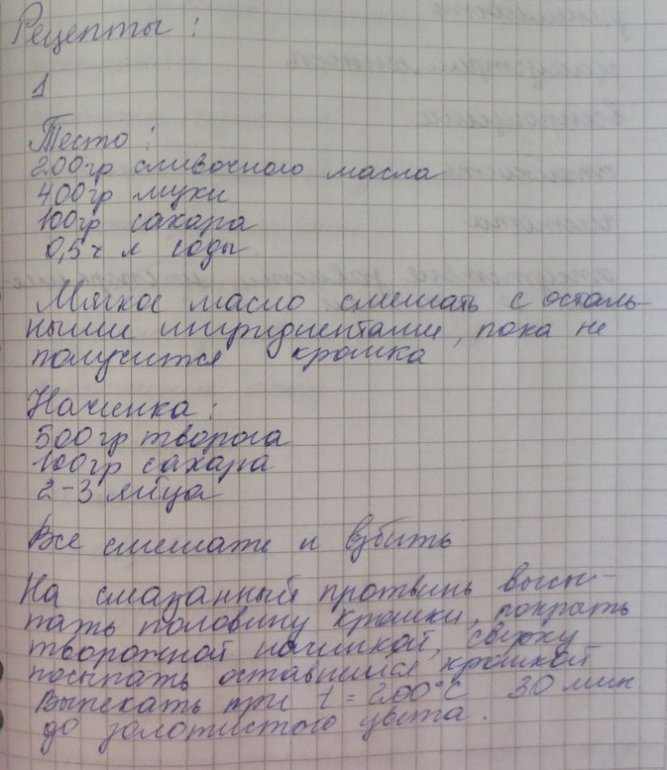 Рецепты :
1
Тесто :
200гр сливочного масла
400гр муки
100гр сахара
0,5 ч л соды
Мягкое масло смешать с осталь-
ными ингридиентами, пока не
получится крошка
Начинка :
500гр творога
100гр сахара
2-3 яйца
Все смешать и взбить
На смазанный противень высы-
пать половину крошки, покрыть
творожной начинкой, сверху
посыпать оставшейся крошкой
Выпекать при t = 200°С 30 мин
до золотистого цвета.